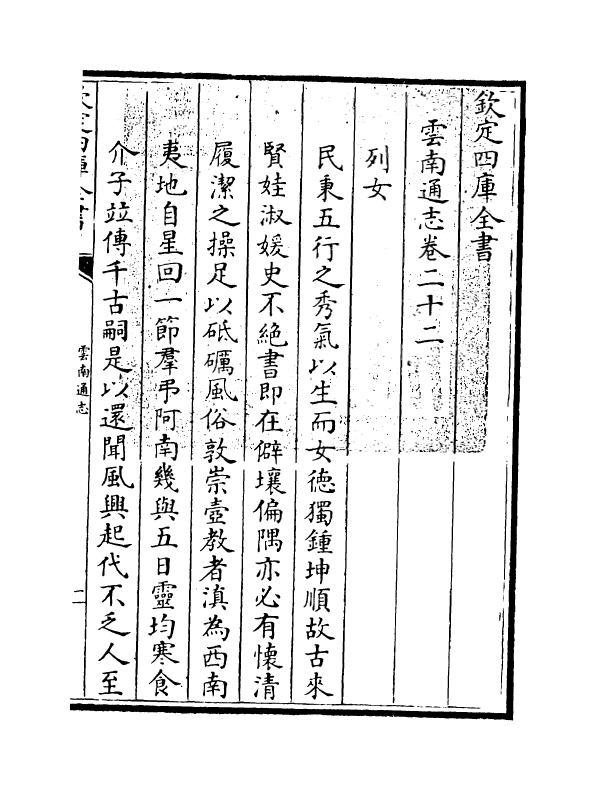 欽定四庫全書
雲南通志卷二十二
列女
民秉五行之秀氣以生而女德獨鍾坤順故古來
賢娃淑媛史不絶書即在僻壤偏隅亦必有懷清
履潔之操足以砥礪風俗敦崇壼教者滇為西南
夷地自星回一節羣弔阿南幾與五日靈均寒食
介子竝傳千古嗣是以還聞風興起代不乏人至
欽定四庫全書
雲南通志
二